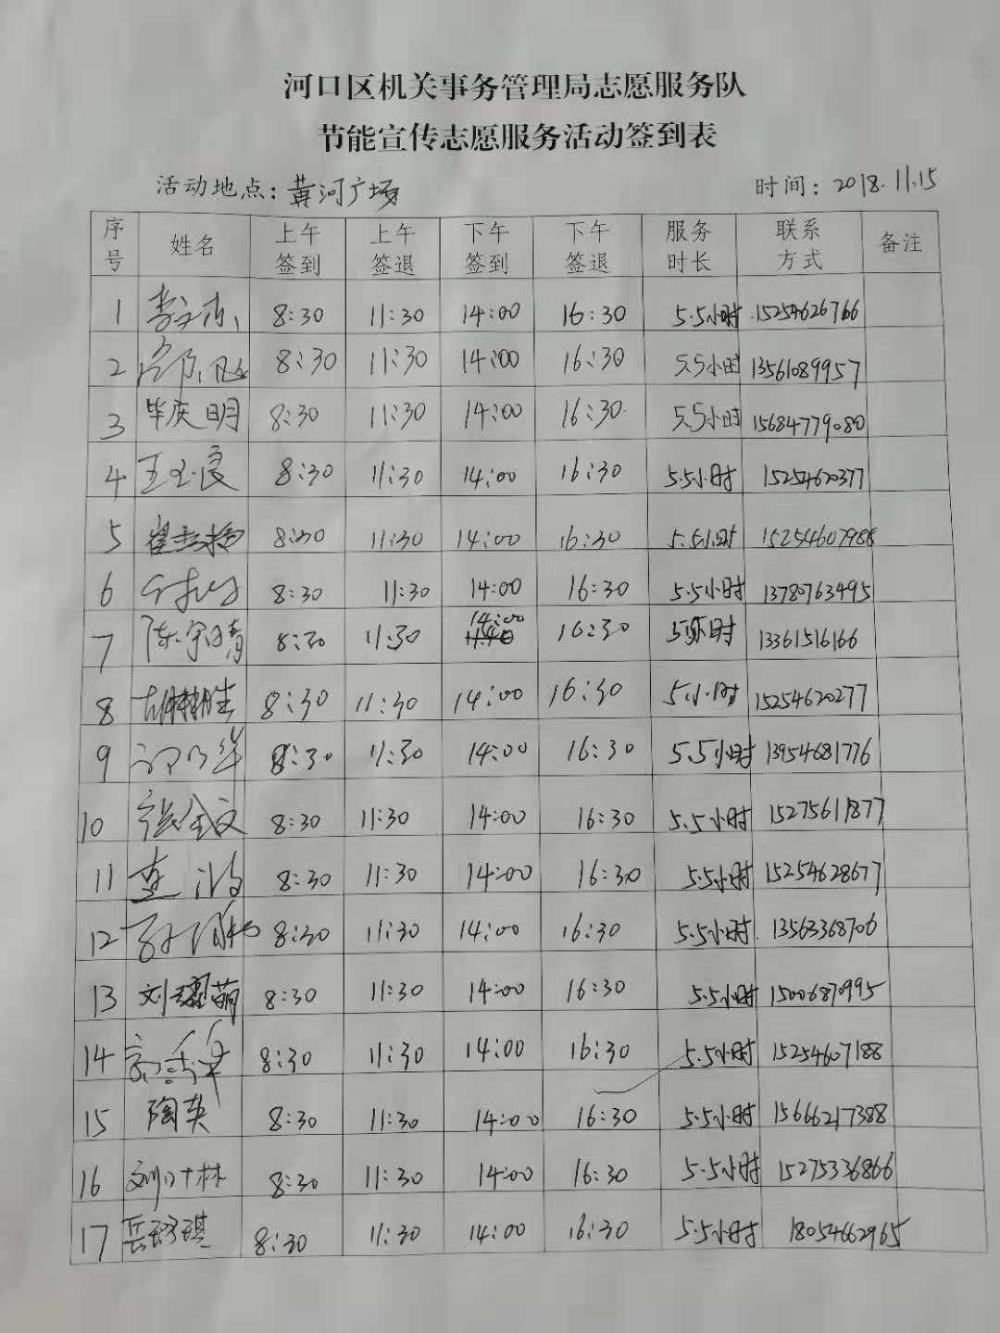 河口区机关事务管理局志愿服务队
节能宣传志愿服务活动签到表
活动地点：黄河广场 时间：2018.11.15
序号 姓名 上午签到 上午签退 下午签到 下午签退 服务时长 联系方式 备注
1 8:30 11:30 14:00 16:30 5.5小时 15254626766
2 8:30 11:30 14:00 16:30 5.5小时 13561089957
3 毕庆明 8:30 11:30 14:00 16:30 5.5小时 15684779080
4 王玉良 8:30 11:30 14:00 16:30 5.5小时 15254620377
5 8:30 11:30 14:00 16:30 5.5小时 15254607988
6 8:30 11:30 14:00 16:30 5.5小时 13780763495
7 陈宇晴 8:30 11:30 14:00 16:30 5.5小时 13361516166
8 8:30 11:30 14:00 16:30 5小时 15254620277
9 8:30 11:30 14:00 16:30 5.5小时 13954681776
10 张全文 8:30 11:30 14:00 16:30 5.5小时 15275611877
11 8:30 11:30 14:00 16:30 5.5小时 15254628677
12 8:30 11:30 14:00 16:30 5.5小时 13563368706
13 刘耀萌 8:30 11:30 14:00 16:30 5.5小时 15006870995
14 8:30 11:30 14:00 16:30 5.5小时 15254607188
15 陶英 8:30 11:30 14:00 16:30 5.5小时 15666217388
16 刘叶林 8:30 11:30 14:00 16:30 5.5小时 15275336866
17 8:30 11:30 14:00 16:30 5.5小时 18054662965